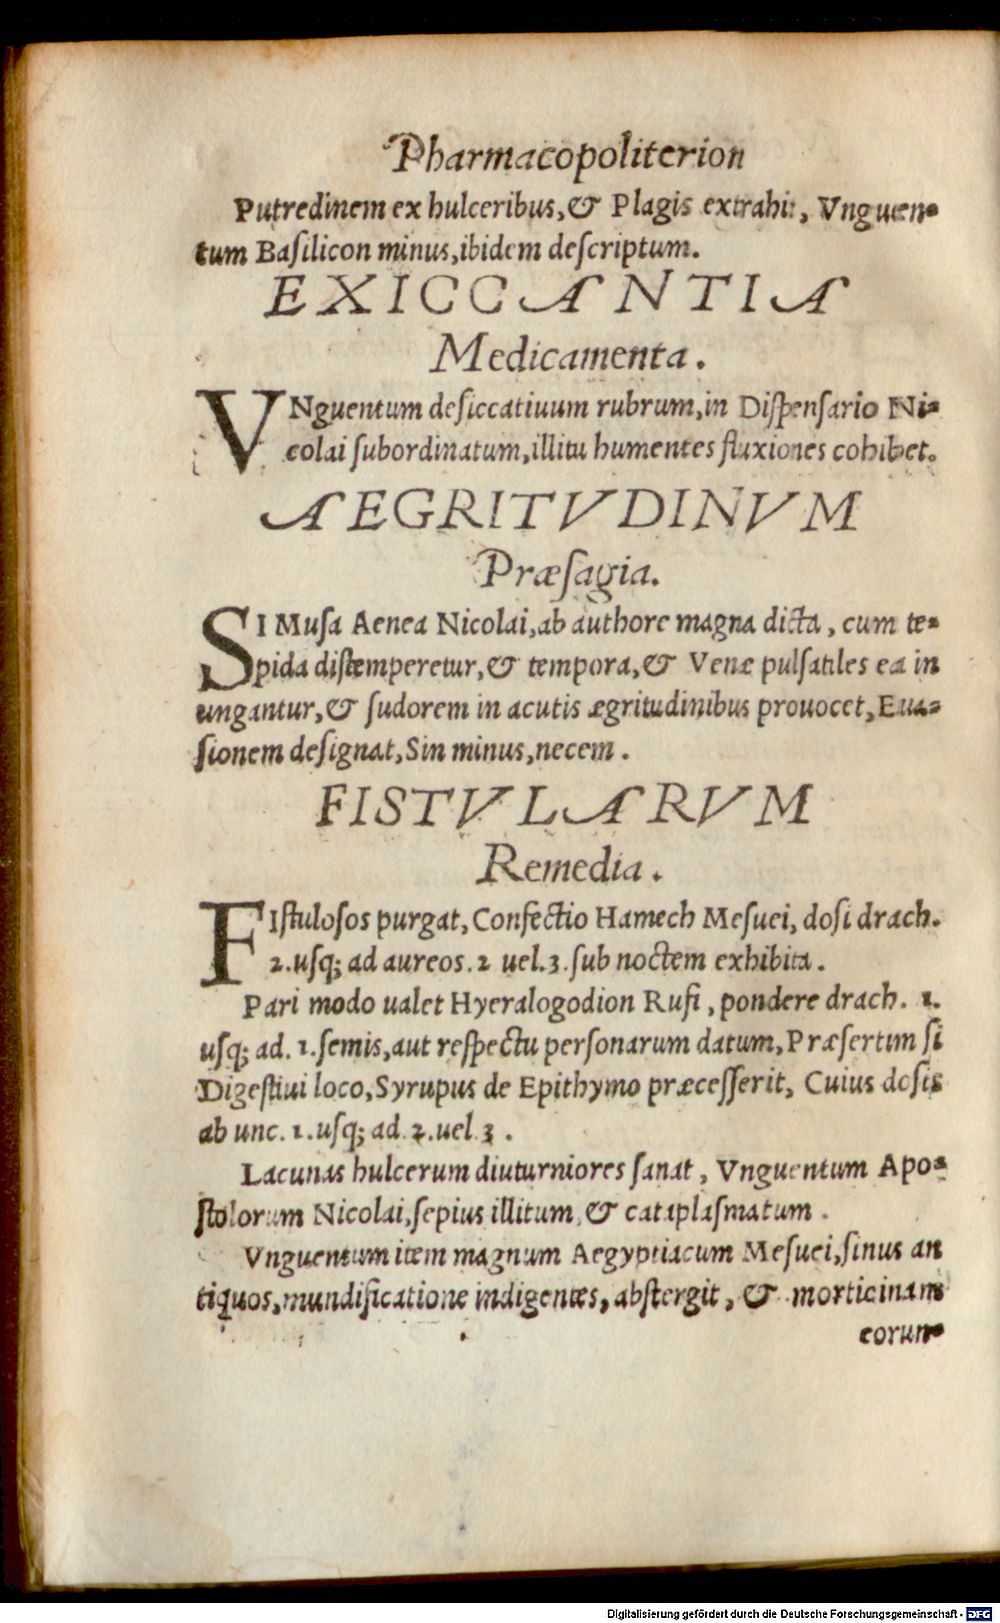 Pharmacopoliterion
Putredinem ex hulceribus, & Plagis extrahit, Vnguen-
tum Basilicon minus, ibidem descriptum.
EXICCANTIA
Medicamenta.
VNguentum desiccatiuum rubrum, in Dispensario Ni-
colai subordinatum, illitu humentes fluxiones cohibet.
AEGRITVDINVM
Præsagia.
SI Musa Aenea Nicolai, ab authore magna dicta, cum te-
pida distemperetur, & tempora, & Venæ pulsatiles ea in
ungantur, & sudorem in acutis ægritudinibus prouocet, Eua-
sionem designat, Sin minus, necem.
FISTVLARVM
Remedia.
FIstulosos purgat, Confectio Hamech Mesuei, dosi drach.
2. usq; ad aureos. 2 uel. 3. sub noctem exhibita.
Pari modo ualet Hyeralogodion Rufi, pondere drach. 1.
usq; ad. 1. semis, aut respectu personarum datum, Præsertim si
Digestiui loco, Syrupus de Epithymo præcesserit, Cuius dosis
ab unc. 1. usq; ad. 2. uel 3.
Lacunas hulcerum diuturniores sanat, Vnguentum Apo-
stolorum Nicolai, sepius illitum, & cataplasmatum.
Vnguentum item magnum Aegyptiacum Mesuei, sinus an
tiquos, mundificatione indigentes, abstergit, & morticinam
eorun-
Digitalisierung gefördert durch die Deutsche Forschungsgemeinschaft - DFG